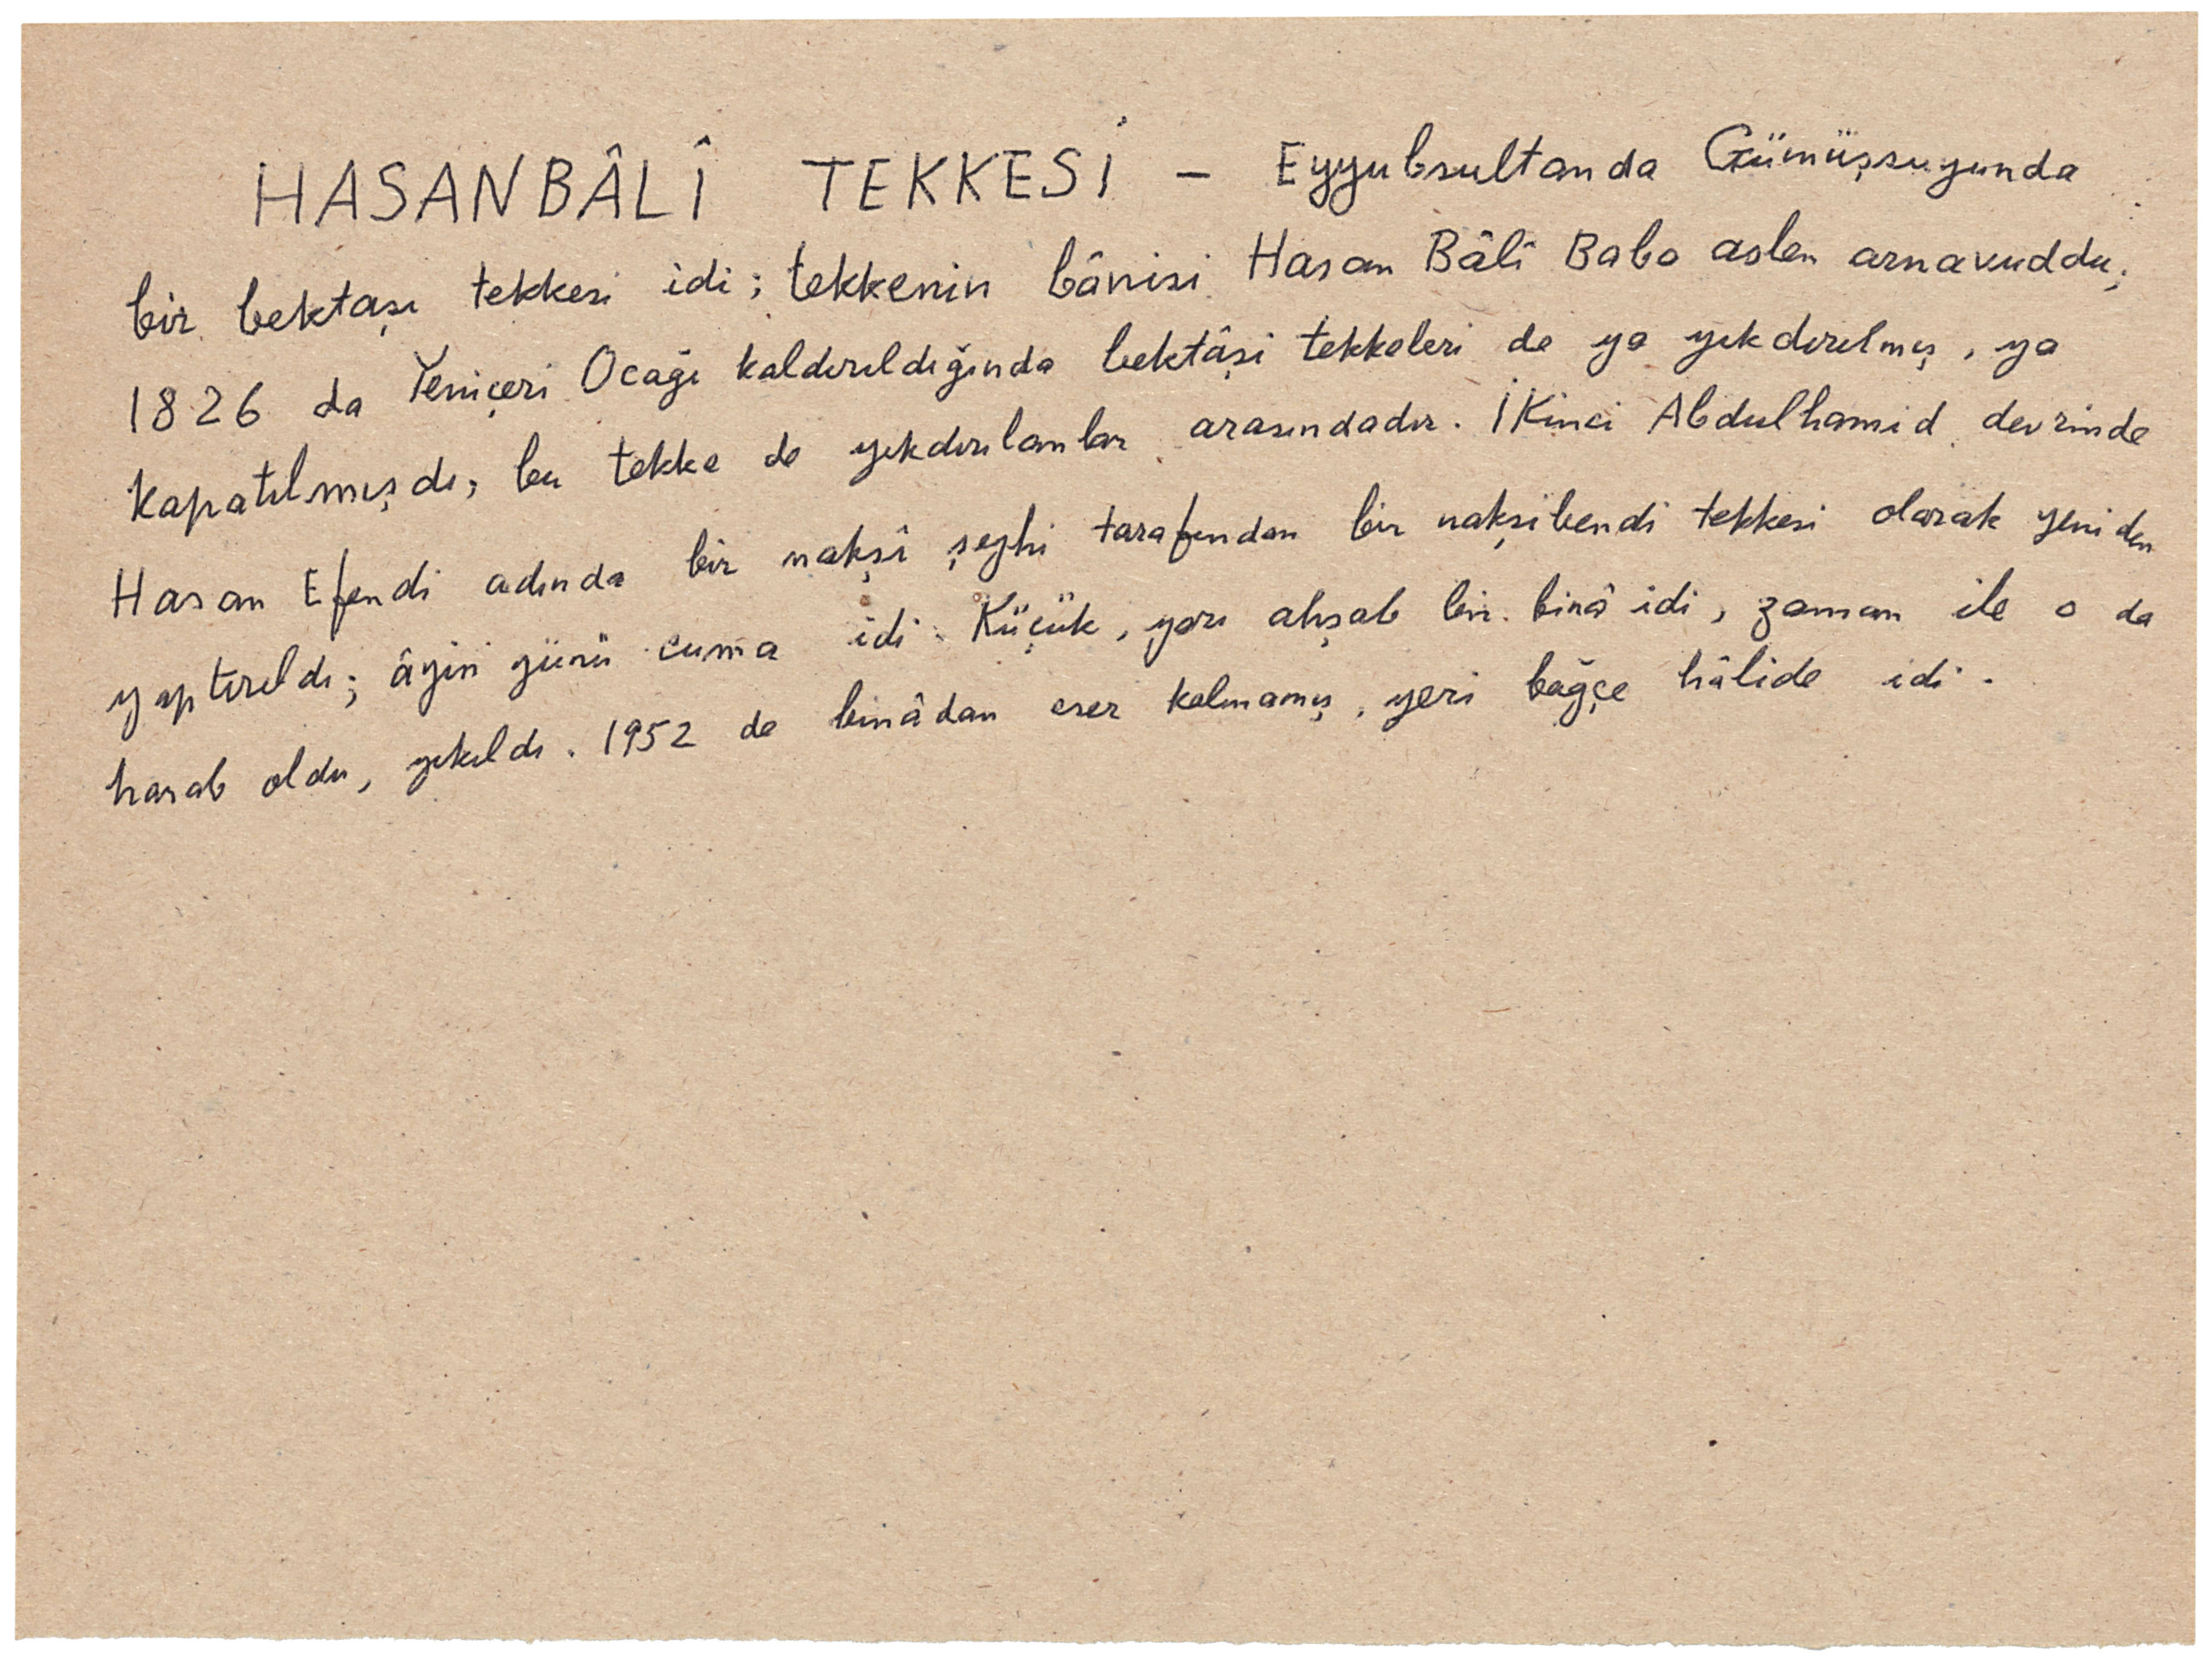 HASANBÂLÎ TEKKESİ – Eyyubsultanda Gümüşsuyunda
bir bektaşı tekkesi idi; tekkenin bânisi Hasan Bâlî Baba aslen arnavuddu;
1826 da Yeniçeri Ocağı kaldırıldığında bektâşi tekkeleri de ya yıkdırılmış, ya
kapatılmışdı; bu tekke de yıkdırılanlar arasındadır. İkinci Abdulhamid devrinde
Hasan Efendi adında bir nakşî şeyhi tarafından bir nakşibendi tekkesi olarak yeniden
yaptırıldı; âyin günü cuma idi. Küçük, yarı ahşab bir binâ idi, zaman ile o da
harab oldu, yıkıldı. 1952 de binâdan eser kalmamış, yeri bağçe hâlide idi.